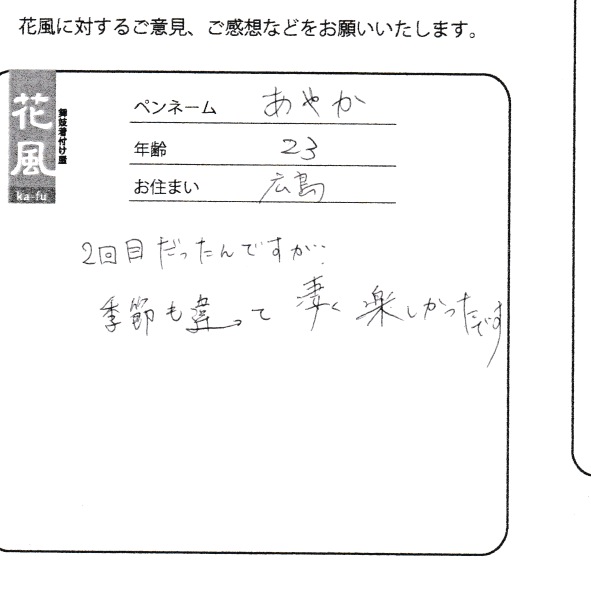 花風に対するご意見、ご感想などをお願いいたします。
花風
舞妓着付け屋
ka-fu
ペンネーム あやか
年齢 23
お住まい 広島
2回目だったんですが…
季節も違って凄く楽しかったです